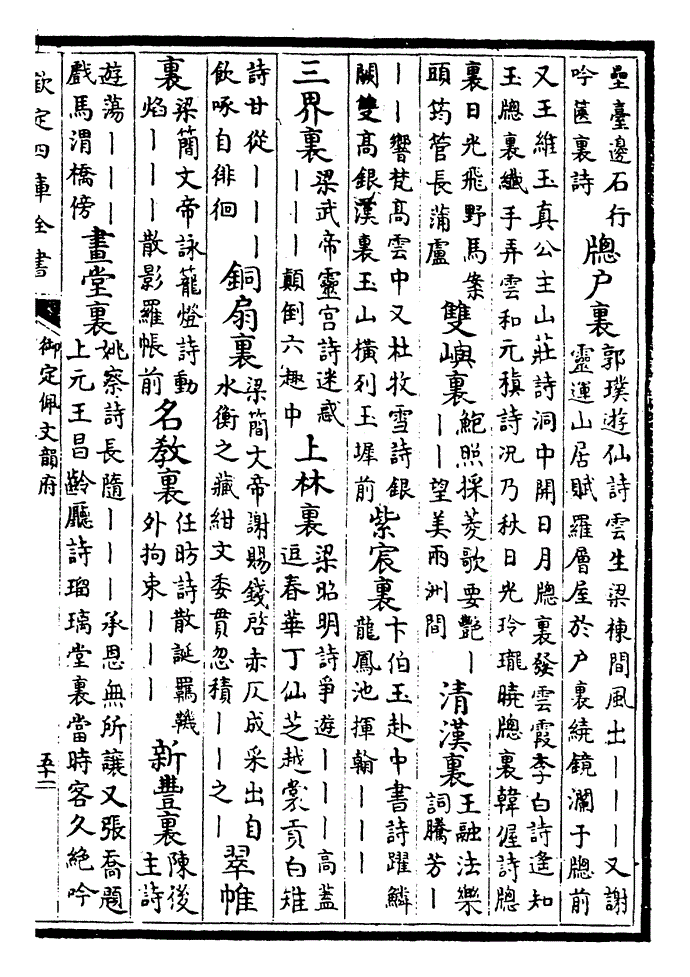 壘臺邊石行吟篋裏詩 牕户裏 郭璞遊仙詩雲生梁棟間風出丨丨丨又謝靈運山居賦羅層屋於户裏繞鏡瀾于牕前
又王維玉真公主山莊詩洞中開日月牕裏發雲霞李白詩遙知玉牕裏纖手弄雲和元稹詩况乃秋日光玲瓏曉牕裏韓偓詩牕
裏日光飛野馬案頭筠管長蒲盧 雙嶼裏 鮑照採菱歌要艷丨丨丨望美兩洲間 清漢裏 王融法樂詞騰芳丨
丨丨響梵髙雲中又杜牧雪詩銀闕雙髙銀漢裏玉山橫列玉墀前 紫宸裏 卞伯玉赴中書詩躍鱗龍鳳池揮翰丨丨丨
三界裏 梁武帝靈宫詩迷惑丨丨丨顛倒六趣中 上林裏 梁昭明詩爭遊丨丨丨高蓋逗春華丁仙芝越裳貢白雉
詩甘從丨丨丨飲啄自徘徊 銅扇裏 梁簡文帝謝賜錢啓赤仄成采出自水衡之藏紺文委貫忽積丨丨之丨 翠帷
裏 梁簡文帝詠籠燈詩動焰丨丨丨散影羅帳前 名教裏 任昉詩散誕羈鞿外拘束丨丨丨 新豐裏 陳後主詩
遊蕩丨丨丨戲馬渭橋傍 畫堂裏 姚察詩長隨丨丨丨承恩無所讓又張喬題上元王昌齡廳詩瑠璃堂裏當時客久絶吟
欽定四庫全書
御定佩文韻府
五十二